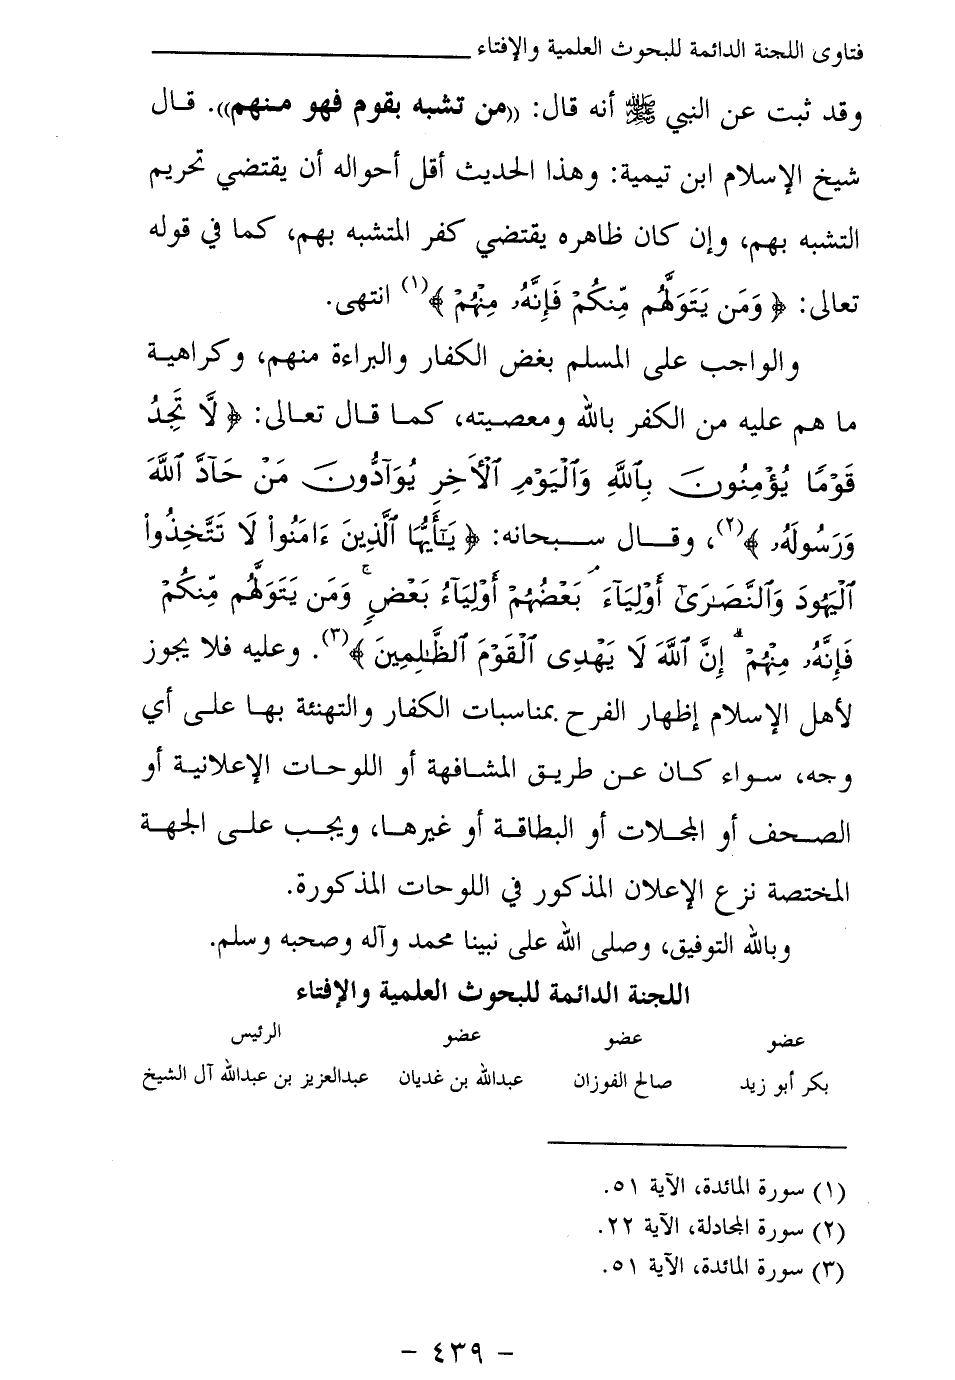 فتاوى اللجنة الدائمة للبحوث العلمية والإفتاء
وقد ثبت عن النبي ﷺ أنه قال: ((من تشبه بقوم فهو منهم)). قال
شيخ الإسلام ابن تيمية: وهذا الحديث أقل أحواله أن يقتضي تحريم
التشبه بهم، وإن كان ظاهره يقتضي كفر المتشبه بهم، كما في قوله
تعالى: ﴿ وَمَن يَتَوَلَّهُم مِّنكُمْ فَإِنَّهُۥ مِنْهُمْ ﴾(١) انتهى.
والواجب على المسلم بغض الكفار والبراءة منهم، وكراهية
ما هم عليه من الكفر بالله ومعصيته، كما قال تعالى: ﴿ لَّا تَجِدُ
قَوْمًا يُؤْمِنُونَ بِٱللَّهِ وَٱلْيَوْمِ ٱلْأَخِرِ يُوَآدُّونَ مَنْ حَآدَّ ٱللَّهَ
وَرَسُولَهُۥ ﴾(٢)، وقال سبحانه: ﴿ يَٰٓأَيُّهَا ٱلَّذِينَ ءَامَنُوا۟ لَا تَتَّخِذُوا۟
ٱلْيَهُودَ وَٱلنَّصَٰرَىٰٓ أَوْلِيَآءَ ۘ بَعْضُهُمْ أَوْلِيَآءُ بَعْضٍ ۚ وَمَن يَتَوَلَّهُم مِّنكُمْ
فَإِنَّهُۥ مِنْهُمْ ۗ إِنَّ ٱللَّهَ لَا يَهْدِى ٱلْقَوْمَ ٱلظَّٰلِمِينَ ﴾(٣). وعليه فلا يجوز
لأهل الإسلام إظهار الفرح بمناسبات الكفار والتهنئة بها على أي
وجه، سواء كان عن طريق المشافهة أو اللوحات الإعلانية أو
الصحف أو المجلات أو البطاقة أو غيرها، ويجب على الجهة
المختصة نزع الإعلان المذكور في اللوحات المذكورة.
وبالله التوفيق، وصلى الله على نبينا محمد وآله وصحبه وسلم.
اللجنة الدائمة للبحوث العلمية والإفتاء
عضو عضو عضو الرئيس
بكر أبو زيد صالح الفوزان عبدالله بن غديان عبدالعزيز بن عبدالله آل الشيخ
(١) سورة المائدة، الآية ٥١.
(٢) سورة المجادلة، الآية ٢٢.
(٣) سورة المائدة، الآية ٥١.
- ٤٣٩ -